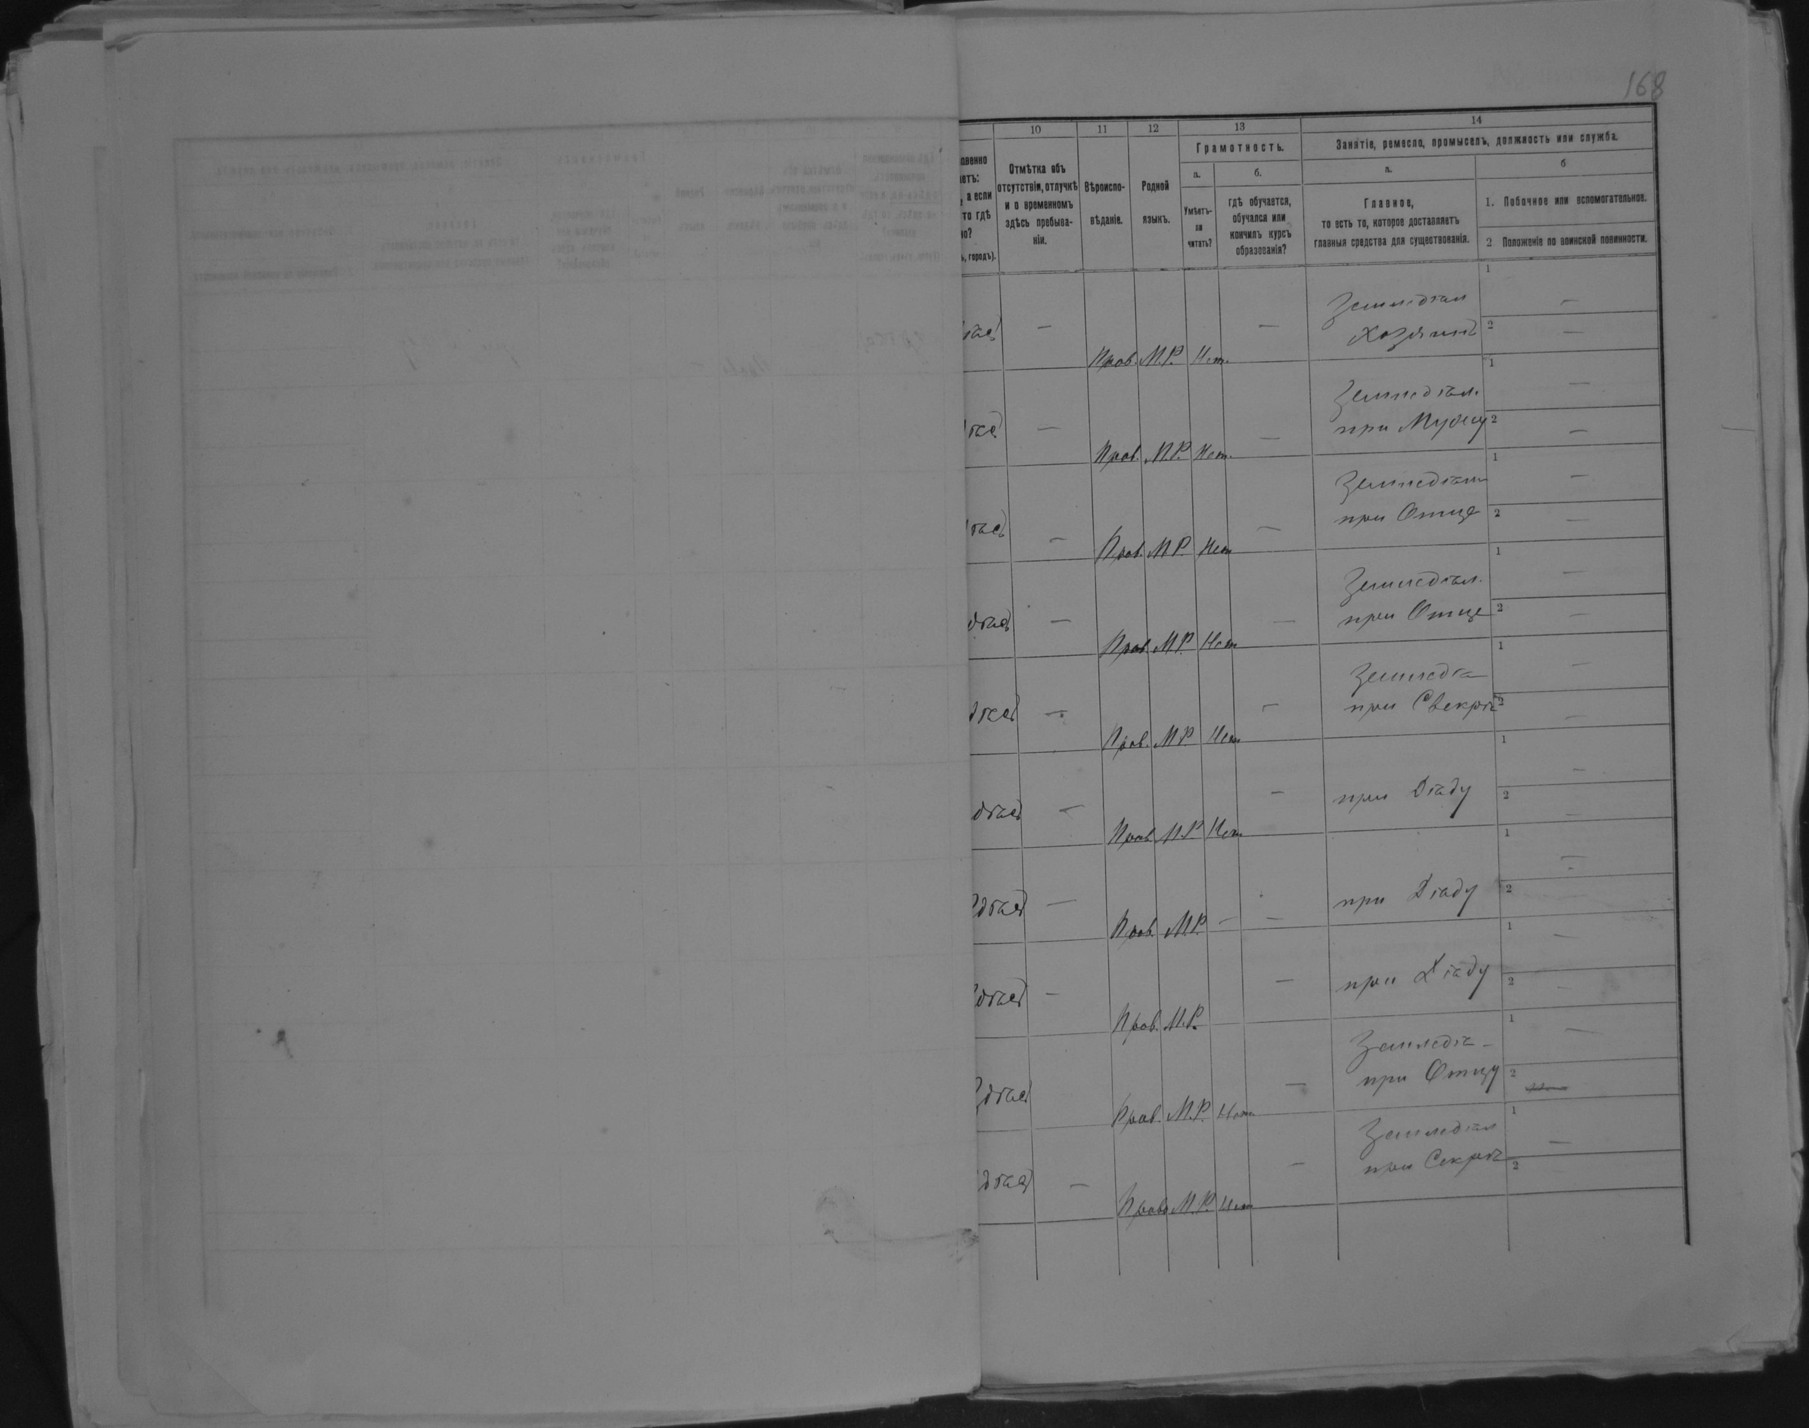 168
10 11 12 13 14
Отмѣтка объ отсутствіи, отлучкѣ и о временномъ здѣсь пребываніи.
Вѣроисповѣданіе.
Родной языкъ.
Грамотность.
а.
Умѣетъ-ли читать?
б.
гдѣ обучается, обучался или кончилъ курсъ образованія?
Занятіе, ремесло, промыселъ, должность или служба.
а.
Главное,
то есть то, которое доставляетъ
главныя средства для существованія.
б
1. Побочное или вспомогательное.
2 Положеніе по воинской повинности.
— Прав. М.Р. Нет. — Земледѣл 1 —
Хозяинъ 2 —
— Прав. М.Р. Нет. — Земледѣл. 1 —
при Мужу 2 —
— Прав. М.Р. Нет — Земледѣл 1 —
при Отце 2 —
— Прав. М.Р. Нет — Земледѣл. 1 —
при Отце 2 —
— Прав. М.Р. Нет — Земледѣ 1 —
при Свекрѣ 2 —
— Прав М.Р. Нет — при Дѣду 1 —
2 —
— Прав. М.Р. — — при Дѣду 1 —
2
— Прав. М.Р. — при Дѣду 1 —
2 —
Прав. М.Р. Нет. — Земледѣ- 1 —
при Отцу 2
— Прав М.Р. Нет — Земледѣл 1 —
при Секрѣ 2